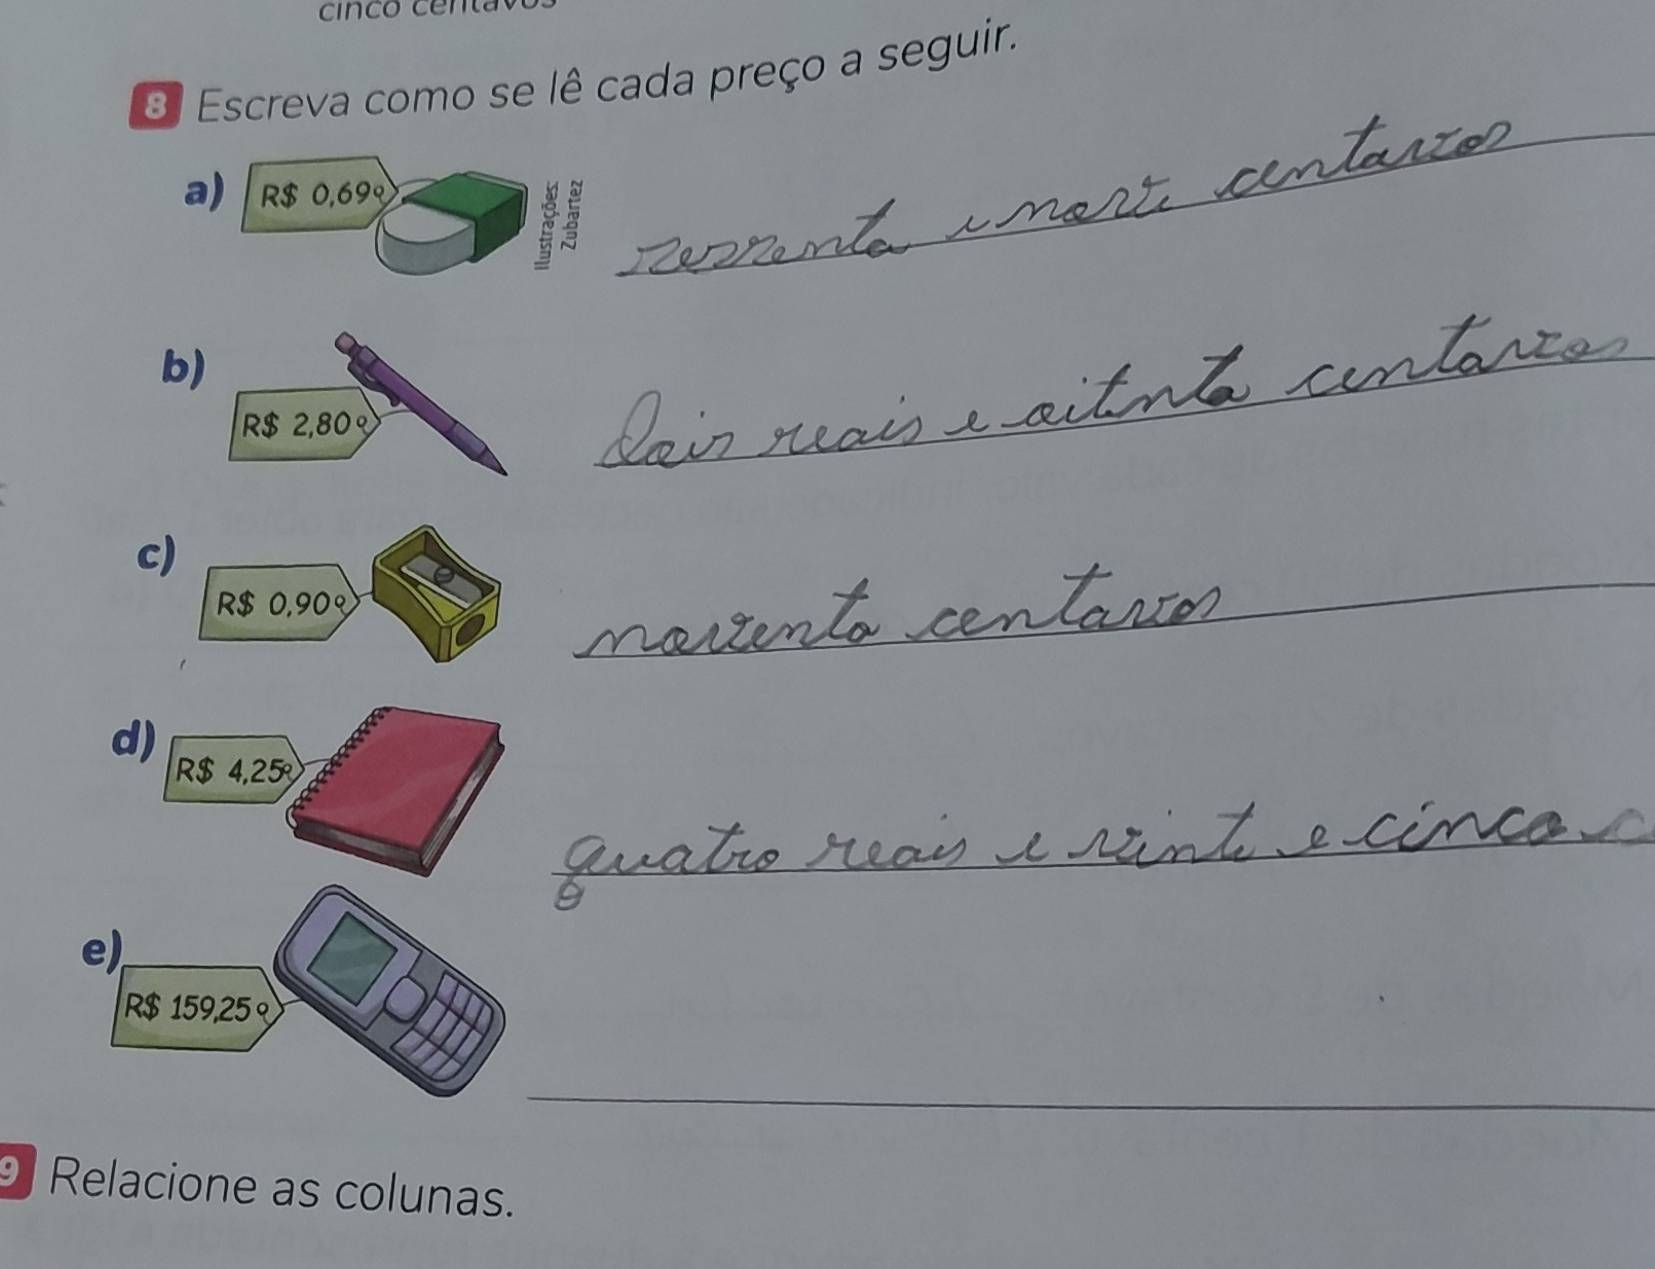 cinco centavos
8 Escreva como se lê cada preço a seguir.
a) R$ 0,69 sessenta e nove centavos
Ilustrações:
Zubartez
b) R$ 2,80 Dois reais e oitenta centavos
c) R$ 0,90 noventa centavos
d) R$ 4,25 quatro reais e vinte e cinco c
e) R$ 159,25
9 Relacione as colunas.